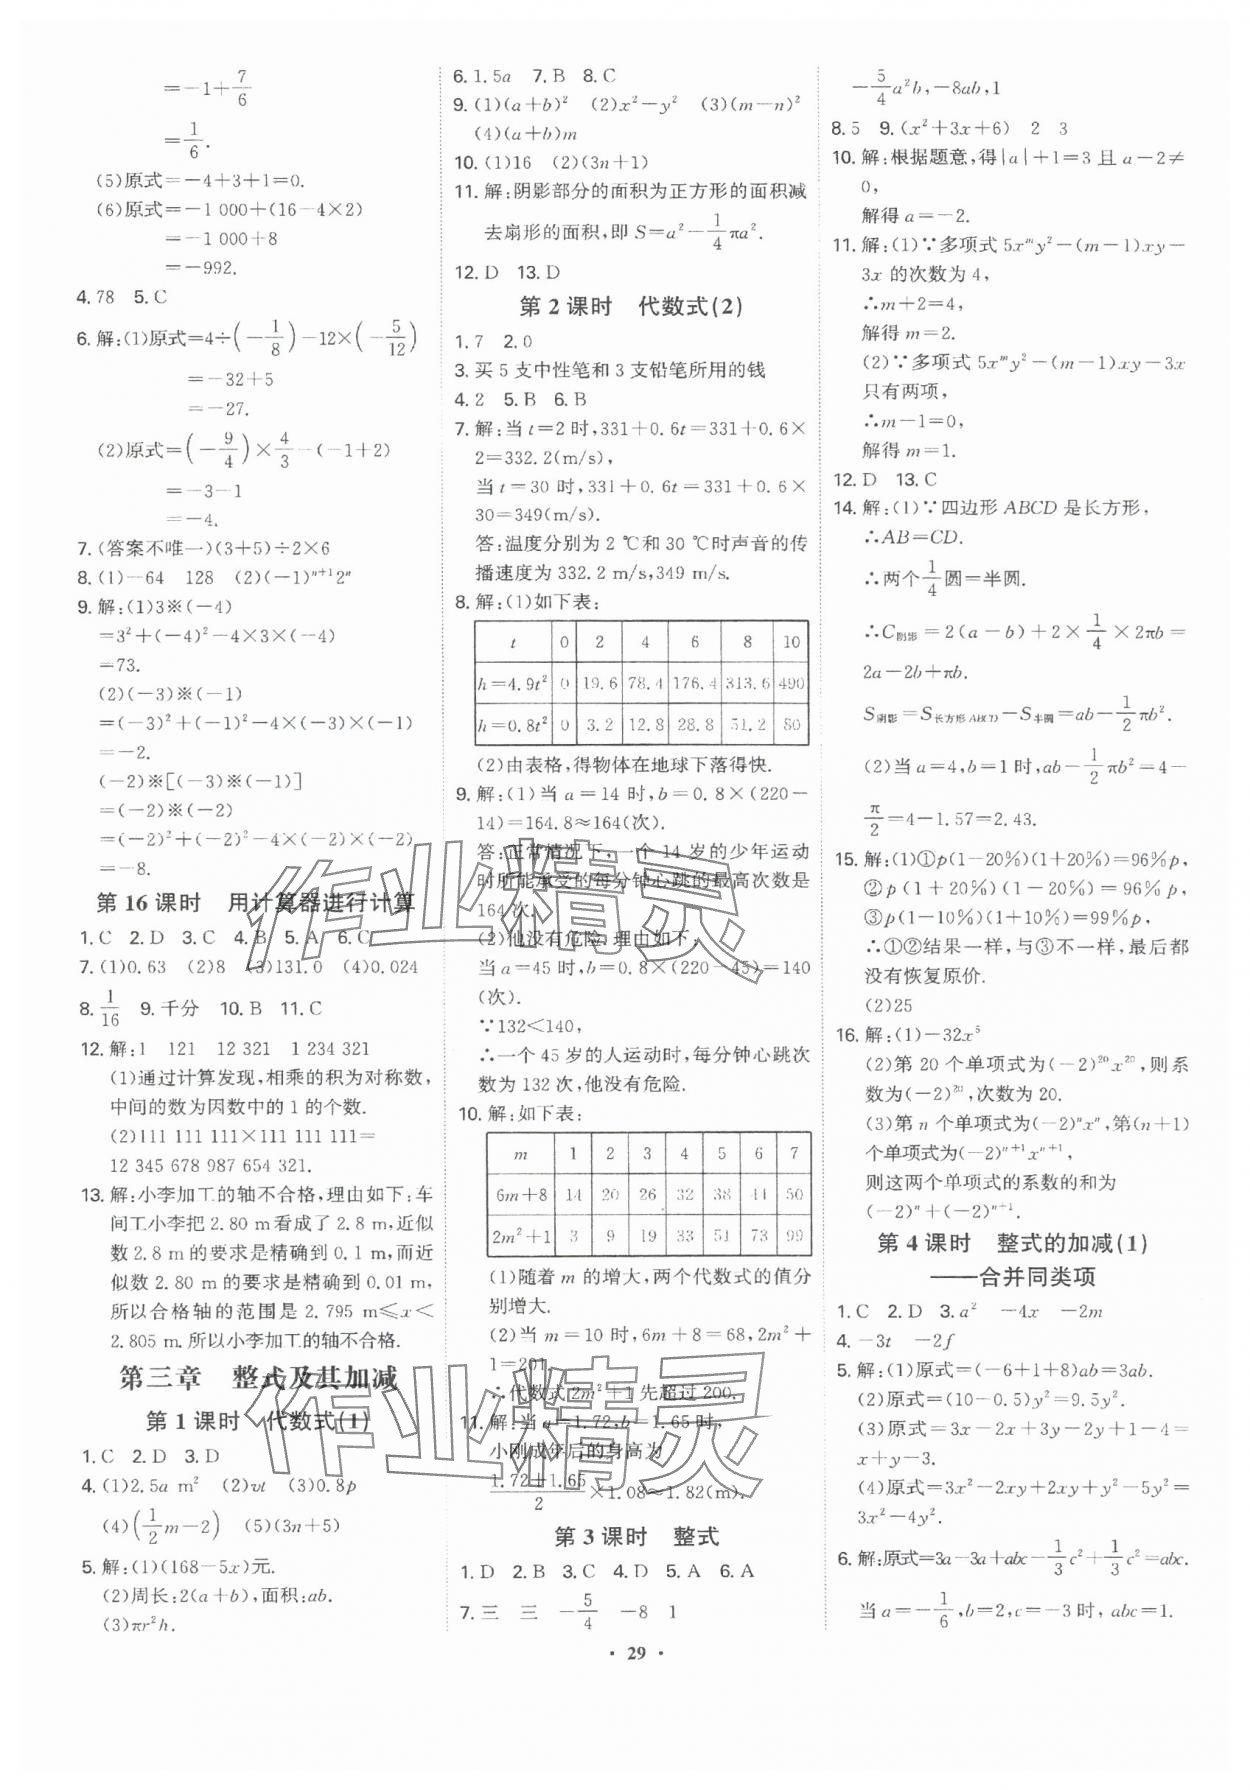 =-1+7/6
=1/6.
(5)原式=-4+3+1=0.
(6)原式=-1 000+(16-4×2)
=-1 000+8
=-992.
4. 78 5. C
6. 解:(1)原式=4÷(-1/8)-12×(-5/12)
=-32+5
=-27.
(2)原式=(-9/4)×4/3-(-1+2)
=-3-1
=-4.
7. (答案不唯一)(3+5)÷2×6
8. (1)-64 128 (2)(-1)ⁿ⁺¹2ⁿ
9. 解:(1)3※(-4)
=3²+(-4)²-4×3×(-4)
=73.
(2)(-3)※(-1)
=(-3)²+(-1)²-4×(-3)×(-1)
=-2.
(-2)※[(-3)※(-1)]
=(-2)※(-2)
=(-2)²+(-2)²-4×(-2)×(-2)
=-8.
第 16 课时 用计算器进行计算
1. C 2. D 3. C 4. B 5. A 6. C
7. (1)0.63 (2)8 (3)131.0 (4)0.024
8. 1/16 9. 千分 10. B 11. C
12. 解:1 121 12 321 1 234 321
(1)通过计算发现,相乘的积为对称数,
中间的数为因数中的 1 的个数.
(2)111 111 111×111 111 111=
12 345 678 987 654 321.
13. 解:小李加工的轴不合格,理由如下:车
间工小李把 2.80 m看成了 2.8 m,近似
数 2.8 m 的要求是精确到 0.1 m,而近
似数 2.80 m 的要求是精确到 0.01 m,
所以合格轴的范围是 2.795 m≤x<
2.805 m.所以小李加工的轴不合格.
第三章 整式及其加减
第 1 课时 代数式(1)
1. C 2. D 3. D
4. (1)2.5a m² (2)vt (3)0.8p
(4)(1/2m-2) (5)(3n+5)
5. 解:(1)(168-5x)元.
(2)周长:2(a+b),面积:ab.
(3)πr²h.
6. 1.5a 7. B 8. C
9. (1)(a+b)² (2)x²-y² (3)(m-n)²
(4)(a+b)m
10. (1)16 (2)(3n+1)
11. 解:阴影部分的面积为正方形的面积减
去扇形的面积,即 S=a²-1/4πa².
12. D 13. D
第 2 课时 代数式(2)
1. 7 2. 0
3. 买 5 支中性笔和 3 支铅笔所用的钱
4. 2 5. B 6. B
7. 解:当 t=2 时,331+0.6t=331+0.6×
2=332.2(m/s),
当 t=30 时,331+0.6t=331+0.6×
30=349(m/s).
答:温度分别为 2 ℃和 30 ℃时声音的传
播速度为 332.2 m/s,349 m/s.
8. 解:(1)如下表:
t 0 2 4 6 8 10
h=4.9t² 0 19.6 78.4 176.4 313.6 490
h=0.8t² 0 3.2 12.8 28.8 51.2 80
(2)由表格,得物体在地球下落得快.
9. 解:(1)当 a=14 时,b=0.8×(220-
14)=164.8≈164(次).
答:正常情况下,一个 14 岁的少年运动
时所能承受的每分钟心跳的最高次数是
164 次.
(2)他没有危险.理由如下:
当 a=45 时,b=0.8×(220-45)=140
(次).
∵132<140,
∴一个 45 岁的人运动时,每分钟心跳次
数为 132 次,他没有危险.
10. 解:如下表:
m 1 2 3 4 5 6 7
6m+8 14 20 26 32 38 44 50
2m²+1 3 9 19 33 51 73 99
(1)随着 m 的增大,两个代数式的值分
别增大.
(2)当 m=10 时,6m+8=68,2m²+
1=201.
∴代数式 2m²+1 先超过 200.
11. 解:当 a=1.72,b=1.65时,
小刚成年后的身高为
(1.72+1.65)/2×1.08≈1.82(m).
第 3 课时 整式
1. D 2. B 3. C 4. D 5. A 6. A
7. 三 三 -5/4 -8 1
-5/4a²b,-8ab,1
8. 5 9. (x²+3x+6) 2 3
10. 解:根据题意,得|a|+1=3 且 a-2≠
0,
解得 a=-2.
11. 解:(1)∵多项式 5xᵐy²-(m-1)xy-
3x 的次数为 4,
∴m+2=4,
解得 m=2.
(2)∵多项式 5xᵐy²-(m-1)xy-3x
只有两项,
∴m-1=0,
解得 m=1.
12. D 13. C
14. 解:(1)∵四边形 ABCD 是长方形,
∴AB=CD.
∴两个1/4圆=半圆.
∴C阴影=2(a-b)+2×1/4×2πb=
2a-2b+πb.
S阴影=S长方形ABCD-S半圆=ab-1/2πb².
(2)当 a=4,b=1 时,ab-1/2πb²=4-
π/2=4-1.57=2.43.
15. 解:(1)①p(1-20%)(1+20%)=96%p,
②p(1+20%)(1-20%)=96%p,
③p(1-10%)(1+10%)=99%p,
∴①②结果一样,与③不一样,最后都
没有恢复原价.
(2)25
16. 解:(1)-32x⁵
(2)第 20 个单项式为(-2)²⁰x²⁰,则系
数为(-2)²⁰,次数为 20.
(3)第 n 个单项式为(-2)ⁿxⁿ,第(n+1)
个单项式为(-2)ⁿ⁺¹xⁿ⁺¹,
则这两个单项式的系数的和为
(-2)ⁿ+(-2)ⁿ⁺¹.
第 4 课时 整式的加减(1)
——合并同类项
1. C 2. D 3. a² -4x -2m
4. -3t -2f
5. 解:(1)原式=(-6+1+8)ab=3ab.
(2)原式=(10-0.5)y²=9.5y².
(3)原式=3x-2x+3y-2y+1-4=
x+y-3.
(4)原式=3x²-2xy+2xy+y²-5y²=
3x²-4y².
6. 解:原式=3a-3a+abc-1/3c²+1/3c²=abc.
当 a=-1/6,b=2,c=-3 时,abc=1.
· 29 ·
作业精灵
作业精灵